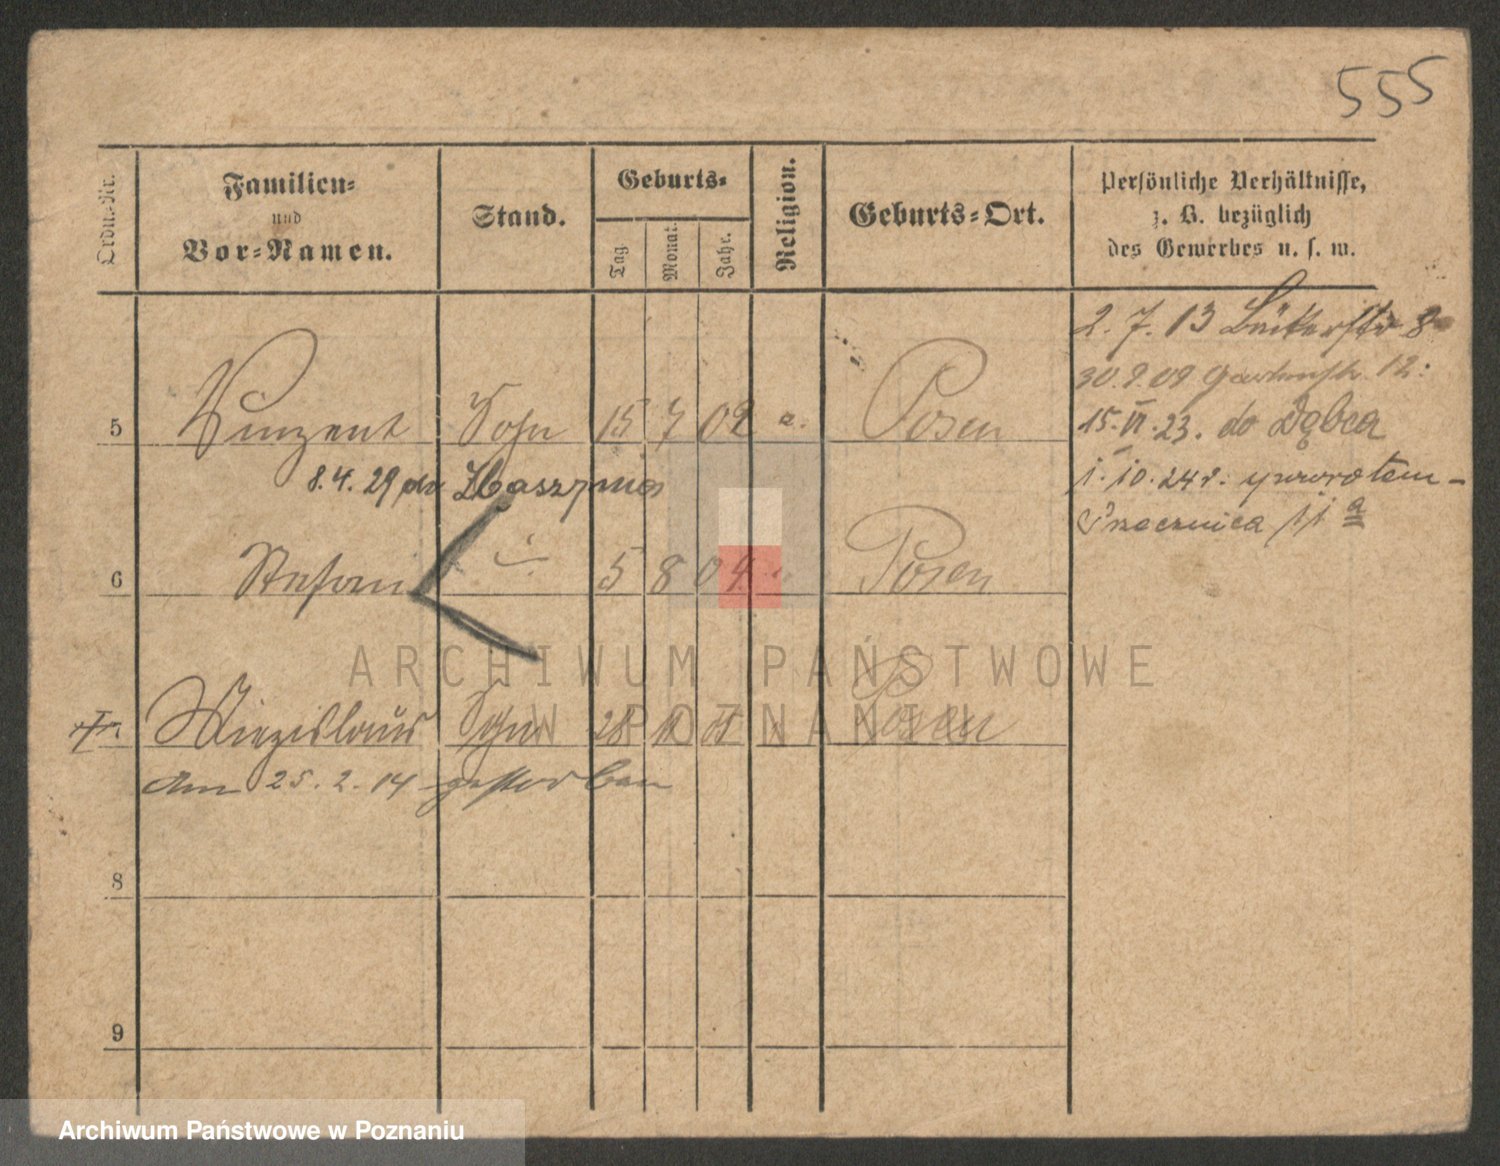 555
Ordn.-Nr.
Familien-
und
Vor-Namen.
Stand.
Geburts-
Tag
Monat.
Jahr.
Religion.
Geburts-Ort.
Persönliche Verhältnisse,
z. B. bezüglich
des Gewerbes u. s. w.
2. 7. 13 8
30.9.09 Gartenstr. 12.
15.VI.23. do Dąbca
1.10.24 r. z powrotem -
11 a
5 Vinzent Sohn 15 7 02 Posen
8.4.29 do
6 Stefan 5 8 04 Posen
Sohn 28 11 Posen
am 25.2.14 gestorben
8
9
ARCHIWUM PAŃSTWOWE
W POZNANIU
Archiwum Państwowe w Poznaniu